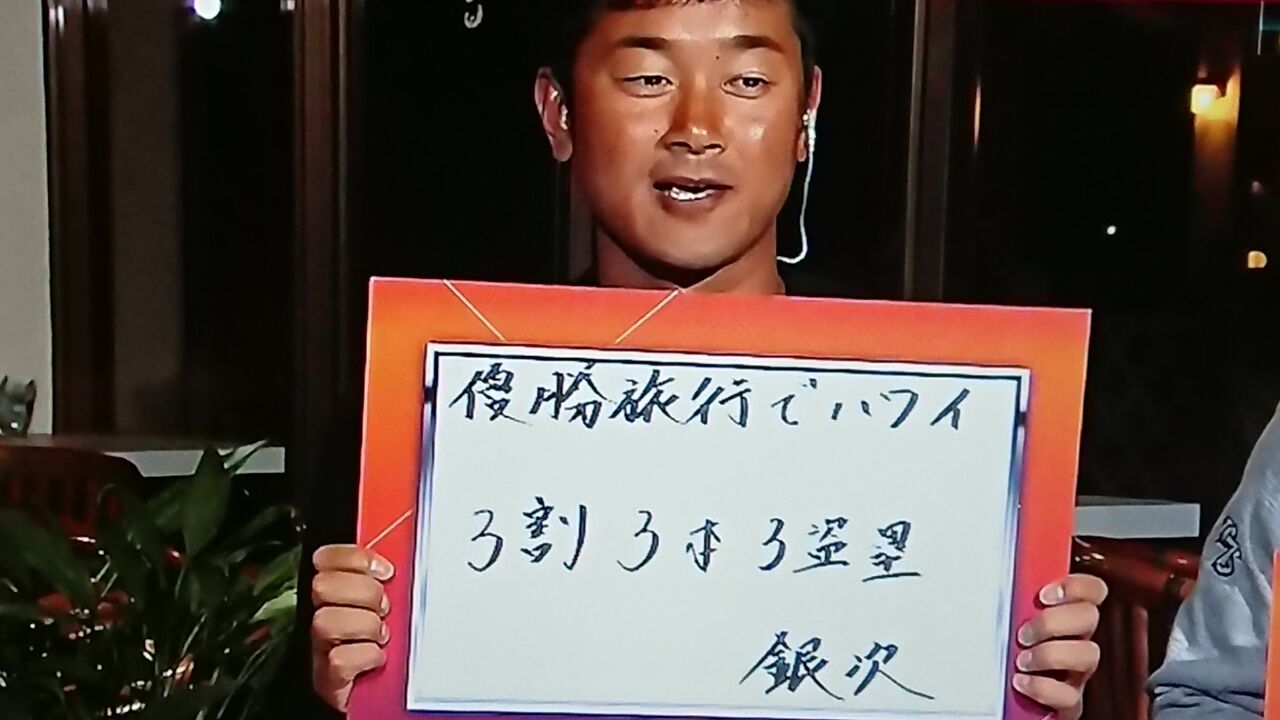 優勝旅行でハワイ
3割 3本 3盗塁
銀次